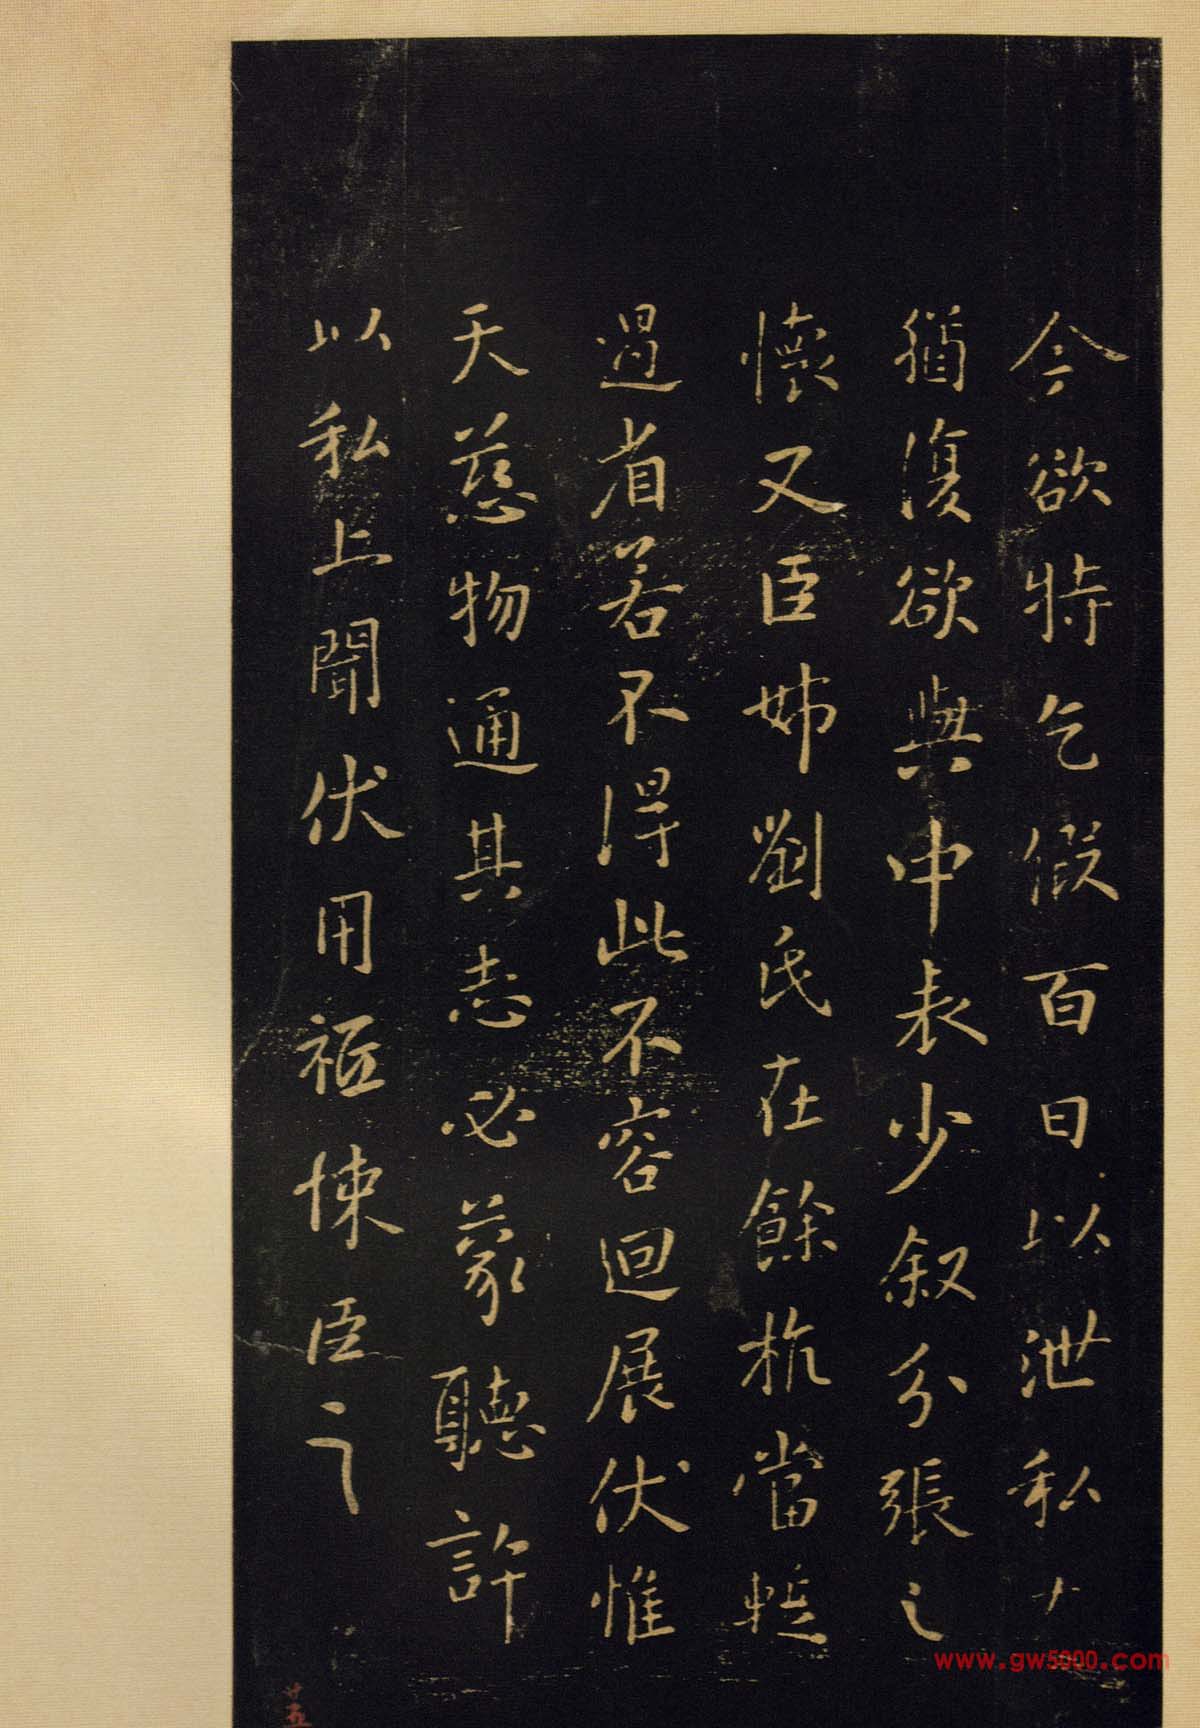 今欲特乞假百日以泄私
猶復欲與中表少叙分張之
懷又臣姊劉氏在餘杭當
過省若不得此不容迴展伏惟
天慈物通其志必蒙聽許
以私上聞伏用祗悚臣之
廿五
www.gw5000.com